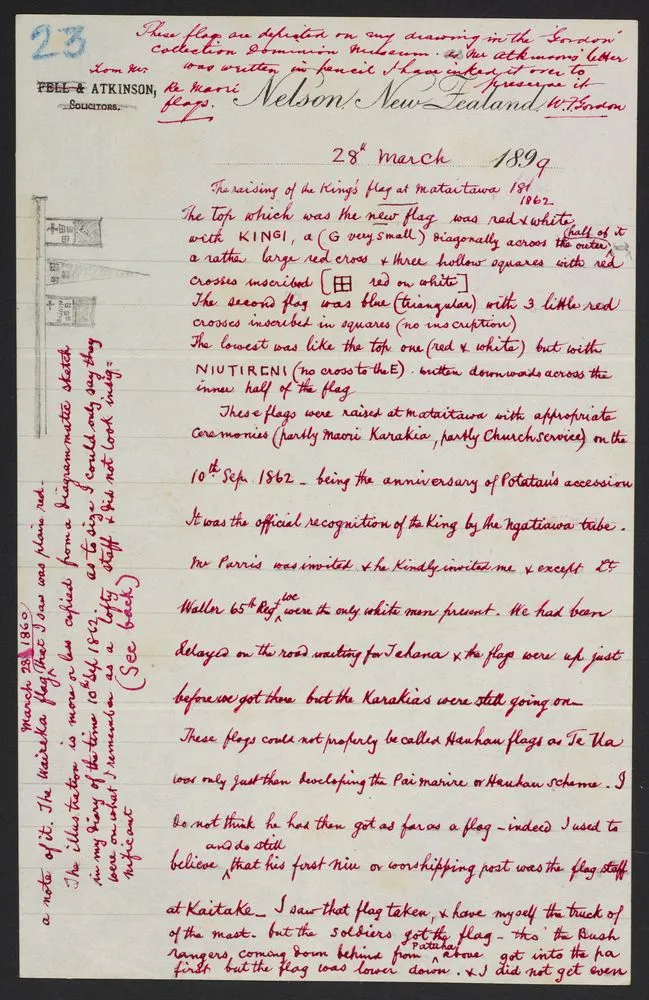 23
These flags are depicted on my drawing in the 'Gordon'
Collection Dominion Museum. as Mr Atkinson's letter
was written in pencil I have inked it over to
preserve it
W.F. Gordon
From Mr.
FELL & ATKINSON,
SOLICITORS.
Re Maori
flags.
Nelson, New Zealand,
28th March 1899
The raising of the King's flag at Mataitawa 181
1862
The top which was the new flag was red & white
with KINGI, a (G very small) diagonally across the outer half of it
a rather large red cross & three hollow squares with red
crosses inscribed [ red on white]
The second flag was blue (triangular) with 3 little red
crosses inscribed in squares (no inscription)
The lowest was like the top one (red & white) but with
NIUTIRENI (no cross to the E) written downwards across the
inner half of the flag
These flags were raised at Mataitawa with appropriate
Ceremonies (partly Maori Karakia, partly Church service) on the
10th Sep. 1862 - being the anniversary of Potatau's accession
It was the official recognition of the King by the Ngatiawa tribe.
Mr Parris was invited & he kindly invited me & except Lt.
Waller 65th Regt we were the only white men present. We had been
delayed on the road waiting for Tahana & the flags were up just
before we got there but the Karakias were still going on -
These flags could not properly be called Hauhau flags as Te Ua
was only just then developing the Pai marire or Hauhau scheme. I
do not think he had then got as far as a flag - indeed I used to
and do still
believe that his first niu or worshipping post was the flag staff
at Kaitake - I saw that flag taken, & have myself the truck of
of the mast. but the soldiers got the flag - tho' the Bush
rangers, coming down behind from Patuha above got into the pa
first but the flag was lower down. & I did not get even
a note of it. The Waireka flag that I saw was plain red.
March 28 1860
The illustration is more or less copied from a diagrammatic sketch
in my diary of the time 10th Sep 1862. as to size I could only say they
were on what I remember as a lofty staff & did not look insig=
nificant
(See back)